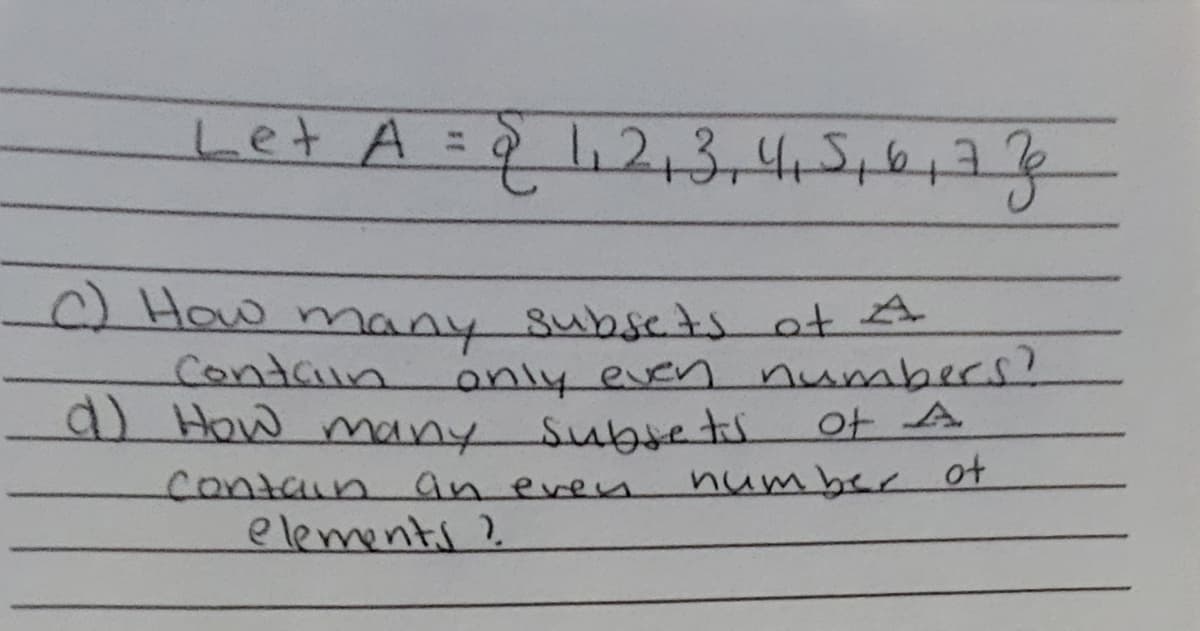 Let A = { 1, 2, 3, 4, 5, 6, 7 }
c) How many subsets of A
contain only even numbers?
d) How many subsets of A
contain an even number of
elements?